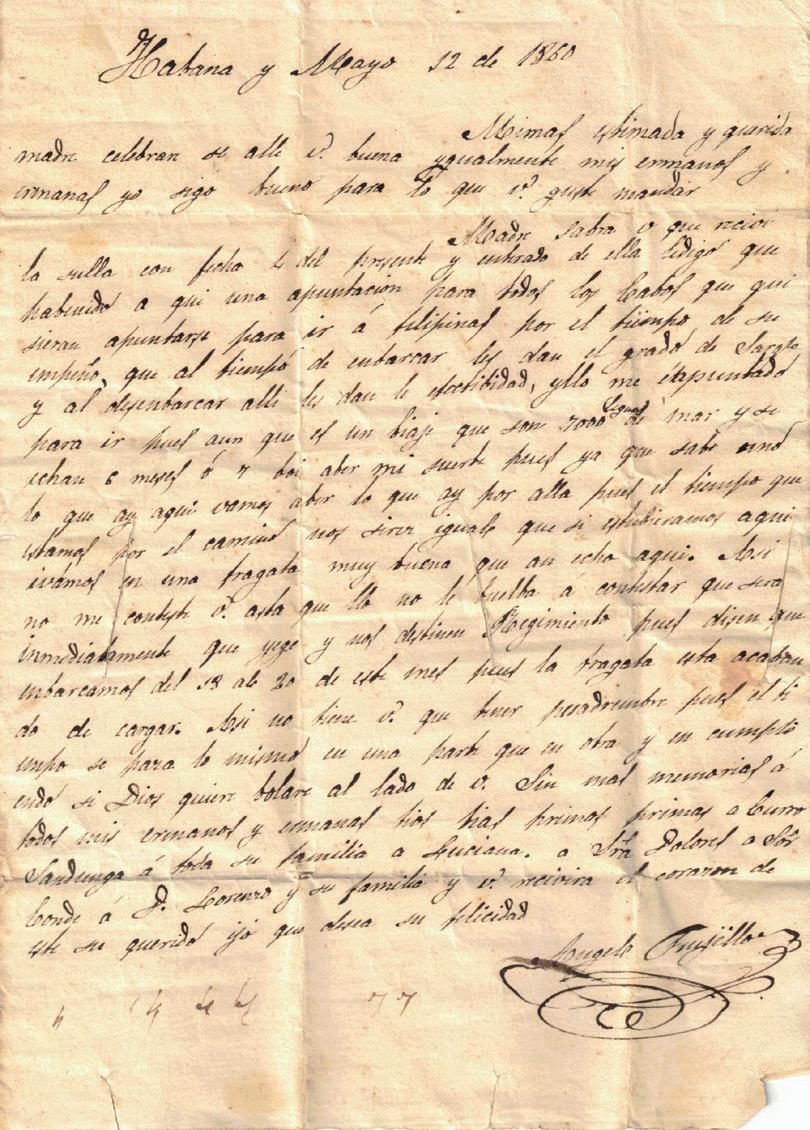 Habana y Mayo 12 de 1860
Mimas estimada y querida
madre celebrare se alle v. buena ygualmente mis ermanos y
ermanas yo sigo bueno para lo que v. guste mandar
Madre sabra v que recivi
la sulla con fecha 4 del presente y enterado de ella ledigo que
habenido a qui una apuntación para todos los Cabos que qui
sieran apuntarse para ir á filipinas por el tiempo de su
empeño, que al tiempo de enbarcar les dan el grado de Sargto
y al desenbarcar alli les dan le efectibidad, yllo me eapuntado
para ir pues aun que es un biaje que son 7000 leguas de mar y se
echan 6 meses ó 7 boi aber mi suerte pues ya que sabe uno
lo que ay aqui vamos aber lo que ay por alla pues el tiempo que
estamos por el camino nos sirve iguale que si estubieramos aqui
ivámos en una fragata muy buena que an echo aqui. Asi
no me conteste v. asta que llo no le buelba á contestar que sera
inmediatamente que yege y nos destinen Regimiento pues disen que
enbarcamos del 18 al 20 de este mes pues la fragata esta acaban
do de cargar. Asi no tiene v. que tener pesadumbre pues el ti
empo se pasa lo mismo en una parte que en otra y en cumpli
endo si Dios quiere bolare al lado de v. Sin mas memorias á
todos mis ermanos y ermanas tios tias primos primas a Curro
Sandunga á toda su familia a Luciana. a Sra Dolores a Sor
Conde á D. Lorenzo y su familia y v. recivira el corazon de
este su querido ijo que desea su felicidad
Angel Trujillo